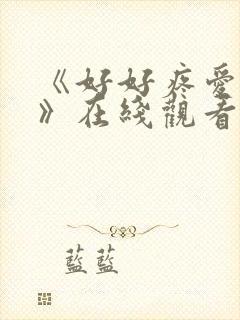 《好好疼愛
》在綫觀看
藍藍